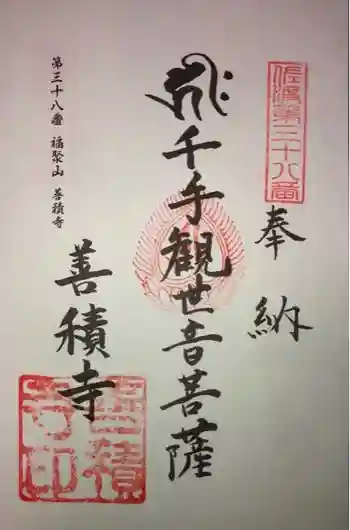 佐渡第三十八番
奉納
𑖮𑖿𑖨𑖱𑖾
千手観世音菩薩
善積寺
善積寺印
第三十八番 福聚山 善積寺